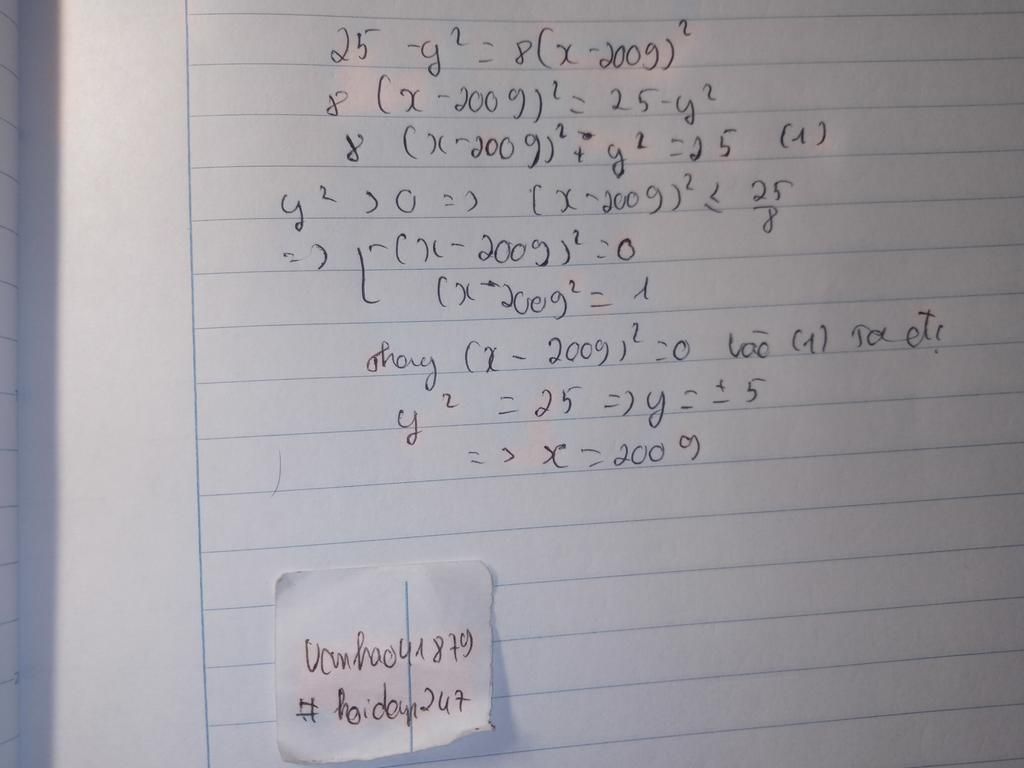 25 - y² = 8(x - 2009)²
8 (x - 2009)² = 25 - y²
8 (x - 2009)² + y² = 25 (1)
y² > 0 => (x - 2009)² ≤ 25/8
=> [ (x - 2009)² = 0
(x - 2009)² = 1
thay (x - 2009)² = 0 vào (1) ta
y² = 25 => y = ± 5
=> x = 2009
Vanhao41879
# hoidap247